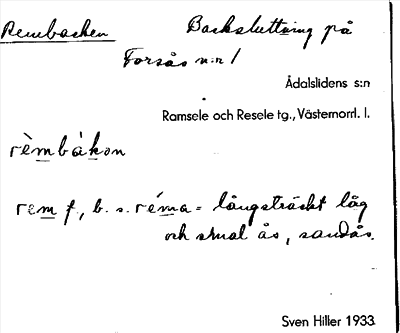 Rembacken Backsluttning på
Forsås n:r 1
Ådalslidens s:n
Ramsele och Resele tg., Västernorrl. l.
rèmbákon
rem f, b. s. réma = långsträckt låg
och smal ås, sandås.
Sven Hiller 1933